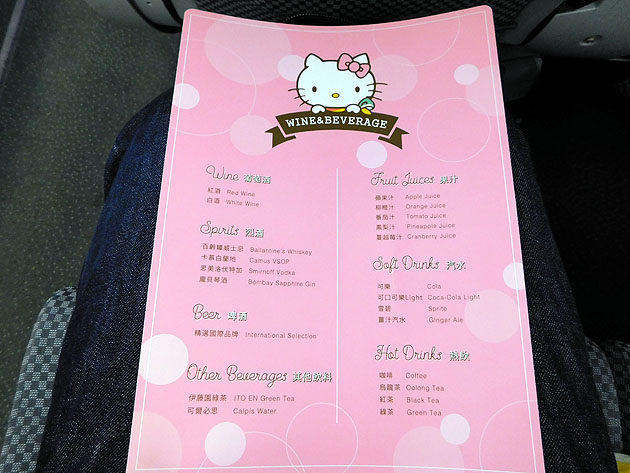 WINE&BEVERAGE
Wine 葡萄酒
紅酒 Red Wine
白酒 White Wine
Spirits 烈酒
百齡罈威士忌 Ballantine's Whiskey
卡慕白蘭地 Camus VSOP
思美洛伏特加 Smirnoff Vodka
龐貝琴酒 Bombay Sapphire Gin
Beer 啤酒
精選國際品牌 International Selection
Other Beverages 其他飲料
伊藤園綠茶 ITO EN Green Tea
可爾必思 Calpis Water
Fruit Juices 果汁
蘋果汁 Apple Juice
柳橙汁 Orange Juice
番茄汁 Tomato Juice
鳳梨汁 Pineapple Juice
蔓越莓汁 Cranberry Juice
Soft Drinks 汽水
可樂 Cola
可口可樂Light Coca-Cola Light
雪碧 Sprite
薑汁汽水 Ginger Ale
Hot Drinks 熱飲
咖啡 Coffee
烏龍茶 Oolong Tea
紅茶 Black Tea
綠茶 Green Tea